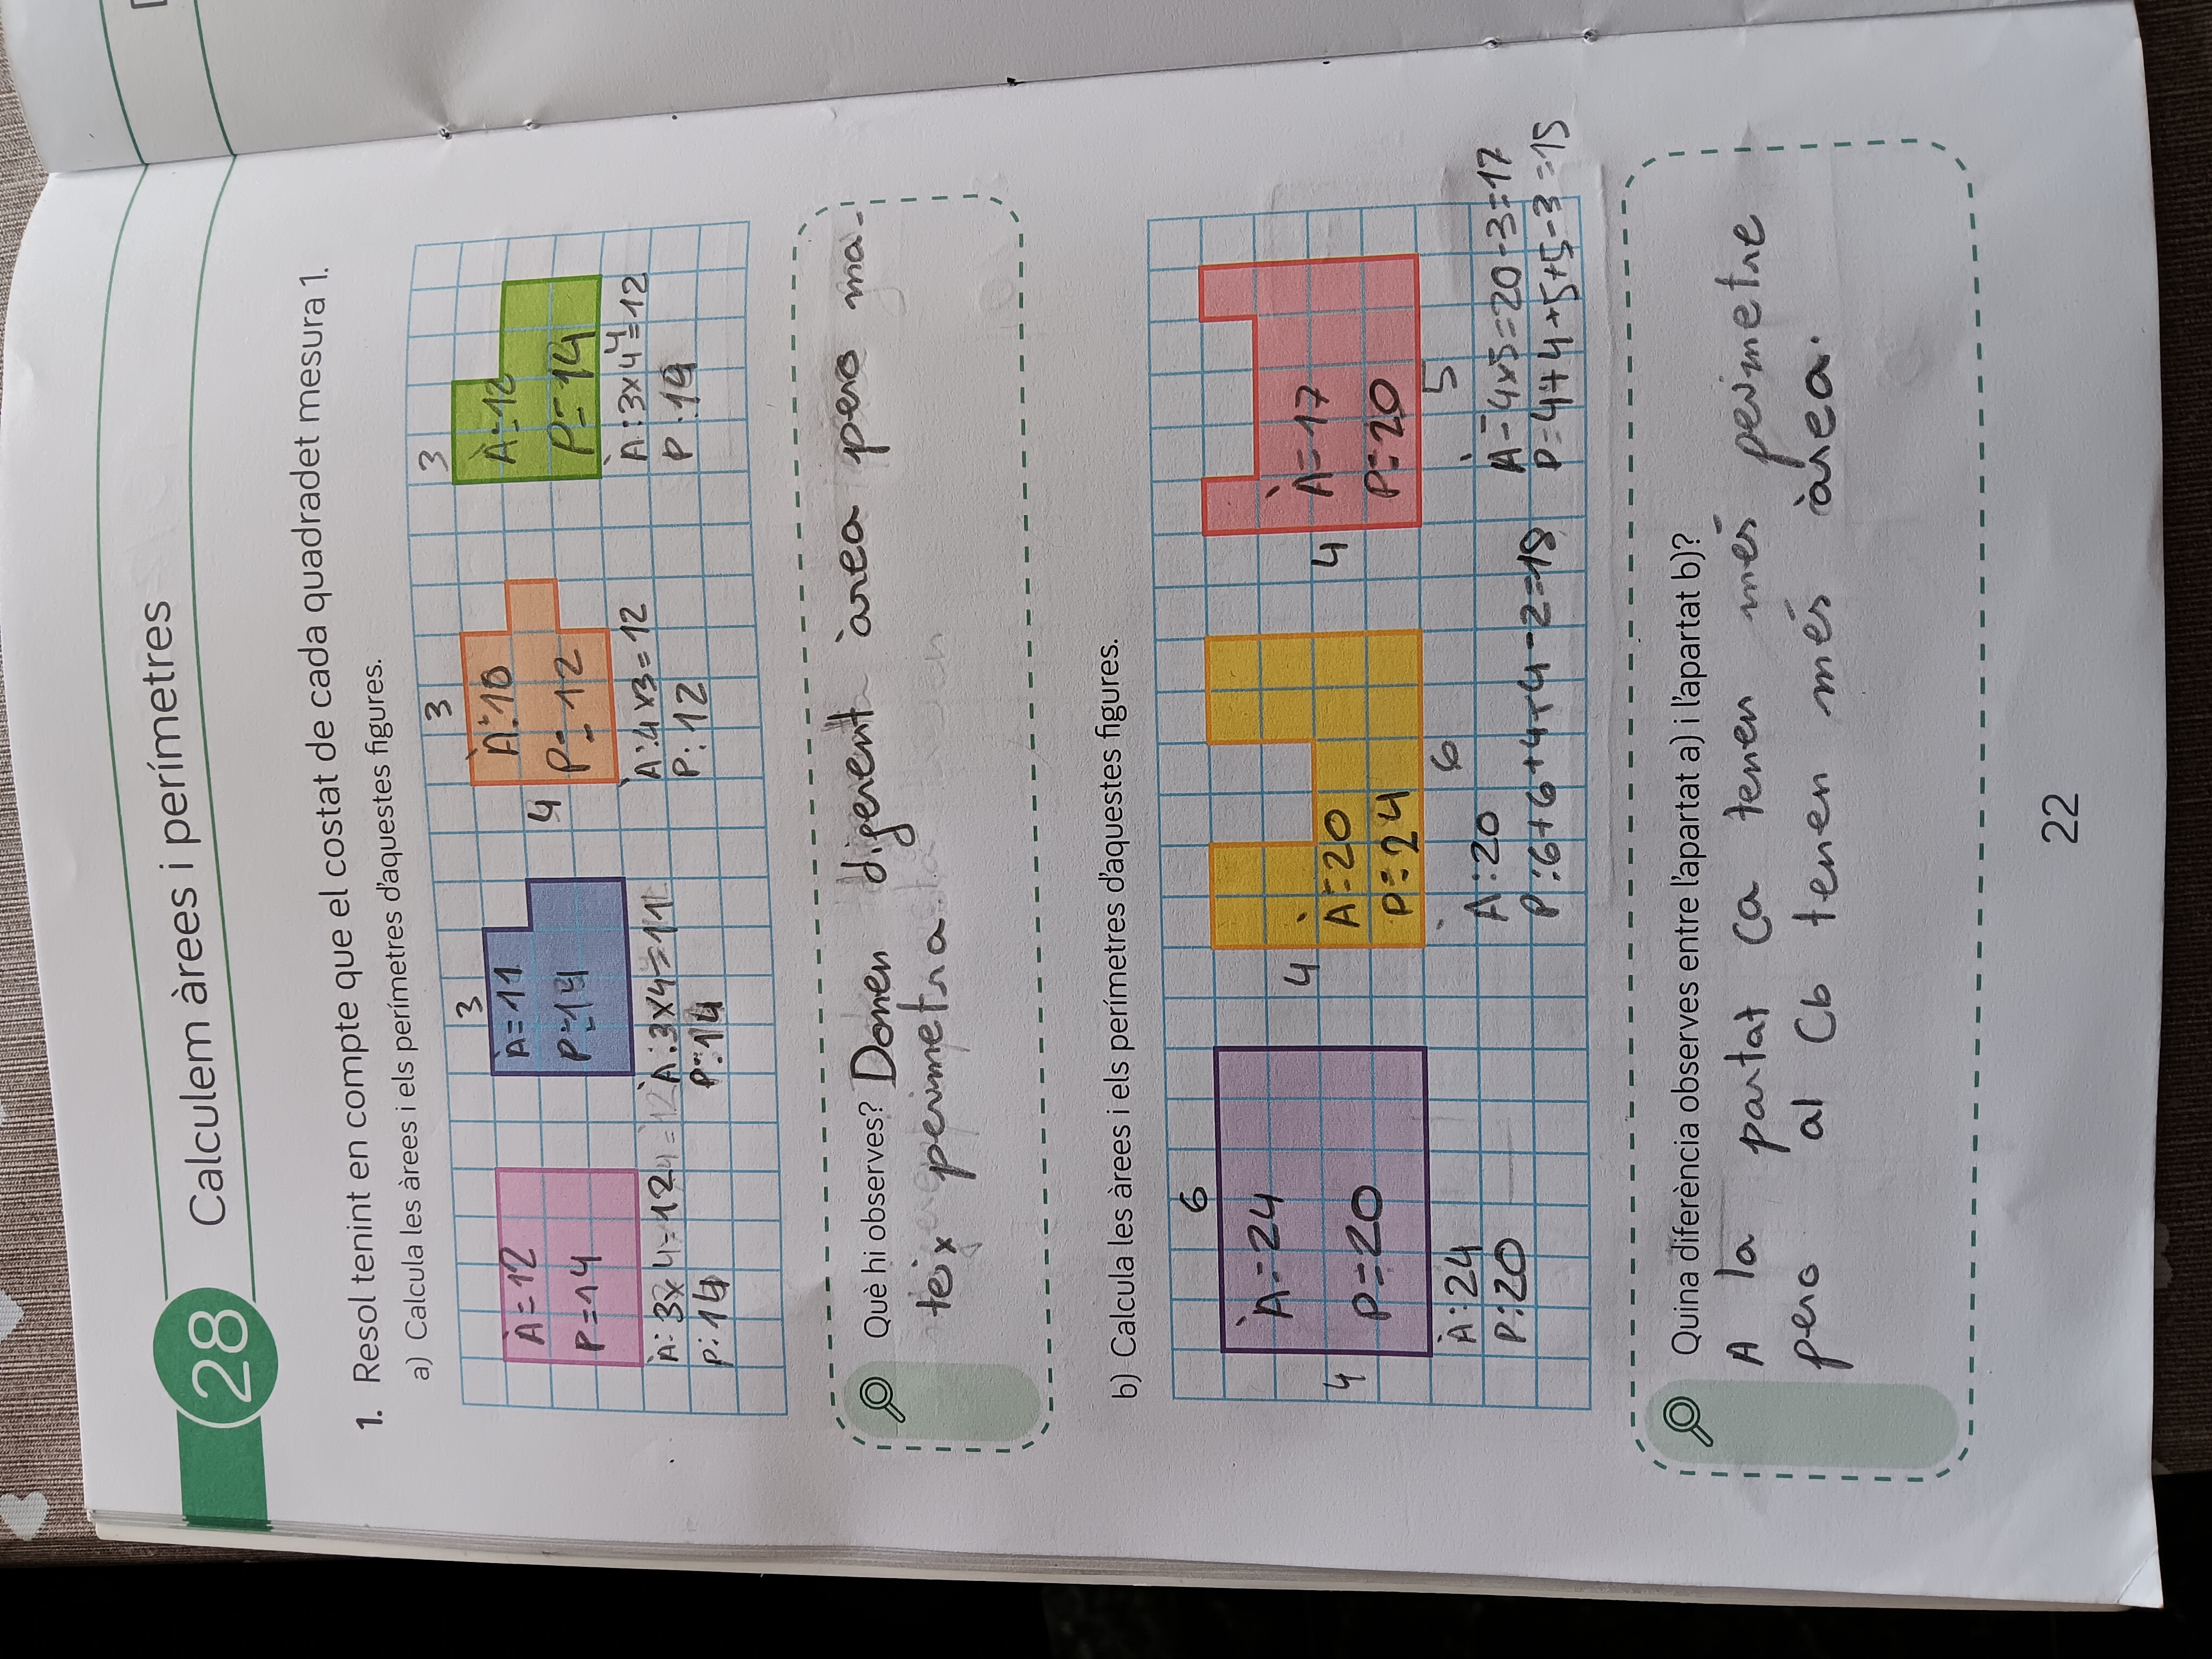 28 Calculem àrees i perímetres
1. Resol tenint en compte que el costat de cada quadradet mesura 1.
a) Calcula les àrees i els perímetres d'aquestes figures.
3
À=12
P=14
À: 3x4=12
P:14
3
À=11
P=14
À:3x4=11
P:14
3
4
À=10
P=12
À:4x3=12
P:12
3
À=12
P=14
4
À:3x4=12
P:14
Què hi observes? Donen digerent àrea pero ma-
teix perimetra.
b) Calcula les àrees i els perímetres d'aquestes figures.
6
4
À=24
P=20
À:24
P:20
4
À=20
P=24
6
À:20
P:6+6+4+4-2=18
4
À=17
P=20
5
À=4x5=20-3=17
P=4+4+5+5-3=15
Quina diferència observes entre l'apartat a) i l'apartat b)?
A la partat Ca tenen més perimetre
pero al Cb tenen més àrea.
22